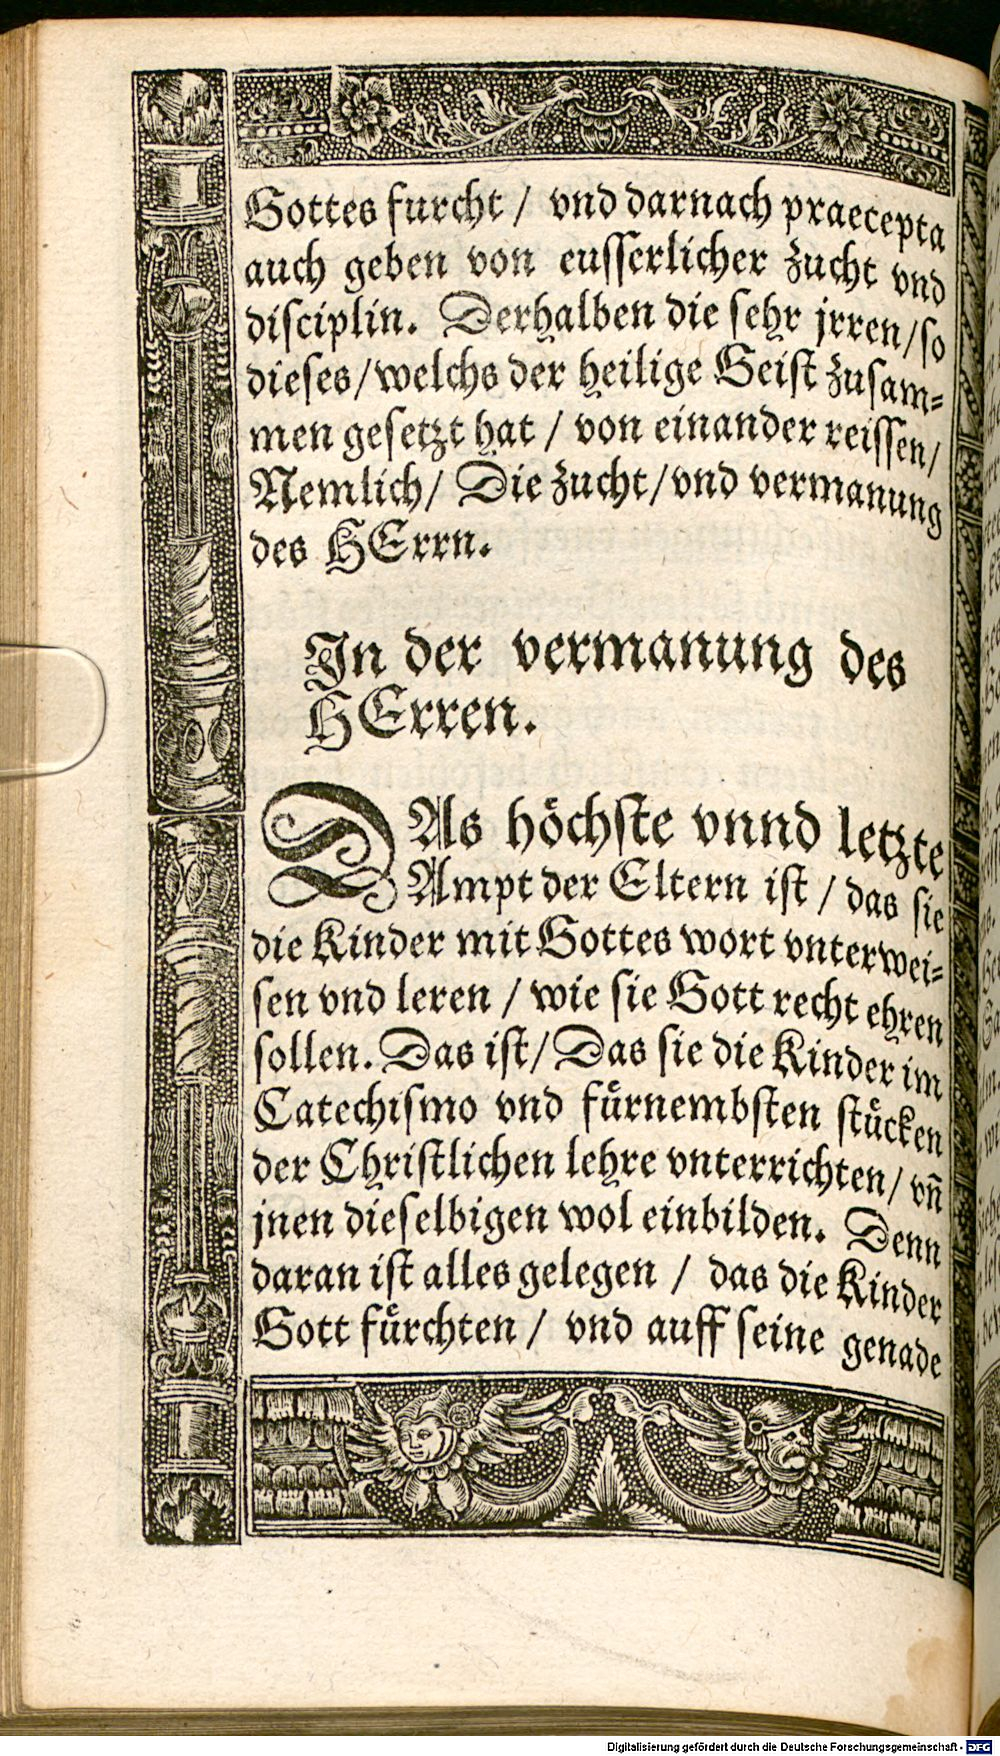 Gottes furcht / vnd darnach praecepta
auch geben von eusserlicher zucht vnd
disciplin. Derhalben die sehr jrren/so
dieses/welchs der heilige Geist zusam=
men gesetzt hat / von einander reissen/
Nemlich/ Die zucht/vnd vermanung
des HErrn.
In der vermanung des
HErren.
DAs höchste vnnd letzte
Ampt der Eltern ist / das sie
die Kinder mit Gottes wort vnterwei=
sen vnd leren / wie sie Gott recht ehren
sollen. Das ist/ Das sie die Kinder im
Catechismo vnd fürnembsten stücken
der Christlichen lehre vnterrichten/ vñ
jnen dieselbigen wol einbilden. Denn
daran ist alles gelegen / das die Kinder
Gott fürchten / vnd auff seine genade
Digitalisierung gefördert durch die Deutsche Forschungsgemeinschaft - DFG